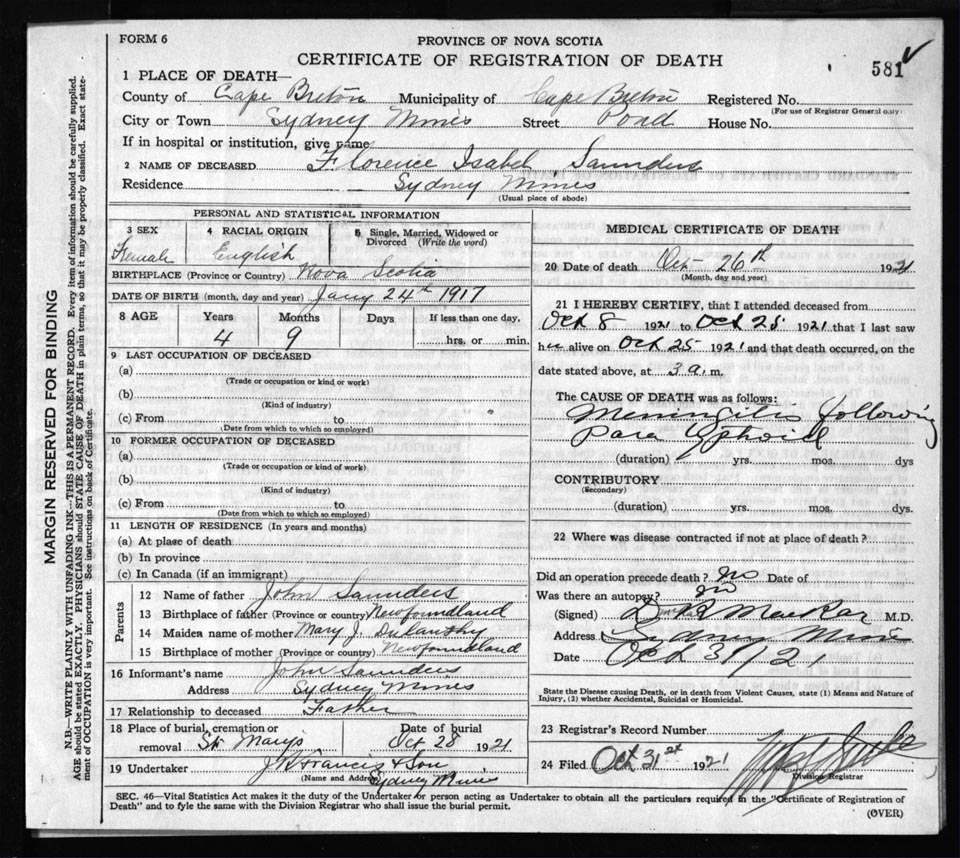 FORM 6
PROVINCE OF NOVA SCOTIA
CERTIFICATE OF REGISTRATION OF DEATH
581
1 PLACE OF DEATH—
County of Cape Breton Municipality of Cape Breton Registered No.
(For use of Registrar General only)
City or Town Sydney Mines Street Pond House No.
If in hospital or institution, give name
2 NAME OF DECEASED Florence Isabel Saunders
Residence Sydney Mines
(Usual place of abode)
PERSONAL AND STATISTICAL INFORMATION
3 SEX 4 RACIAL ORIGIN 5 Single, Married, Widowed or Divorced (Write the word)
Female English
BIRTHPLACE (Province or Country) Nova Scotia
DATE OF BIRTH (month, day and year) Jany 24th 1917
8 AGE Years Months Days If less than one day,
4 9 hrs. or min.
9 LAST OCCUPATION OF DECEASED
(a)
(Trade or occupation or kind or work)
(b)
(Kind of industry)
(c) From to
(Date from which to which so employed)
10 FORMER OCCUPATION OF DECEASED
(a)
(Trade or occupation or kind of work)
(b)
(Kind of industry)
(c) From to
(Date from which to which so employed)
11 LENGTH OF RESIDENCE (In years and months)
(a) At place of death
(b) In province
(c) In Canada (if an immigrant)
Parents
12 Name of father John Saunders
13 Birthplace of father (Province or country) Newfoundland
14 Maiden name of mother Mary J.
15 Birthplace of mother (Province or country) Newfoundland
16 Informant's name John Saunders
Address Sydney Mines
17 Relationship to deceased Father
18 Place of burial, cremation or removal St. Mary's Date of burial Oct 28 1921
19 Undertaker J K Francis & Son
(Name and Address) Sydney Mines
MEDICAL CERTIFICATE OF DEATH
20 Date of death Oct 26th 1921
(Month, day and year)
21 I HEREBY CERTIFY, that I attended deceased from
Oct 8 1921 to Oct 25 1921 that I last saw
her alive on Oct 25 1921 and that death occurred, on the
date stated above, at 3 a. m.
The CAUSE OF DEATH was as follows:
Meningitis following
Para Typhoid
(duration) yrs. mos. dys
CONTRIBUTORY
(Secondary)
(duration) yrs. mos. dys.
22 Where was disease contracted if not at place of death?
Did an operation precede death? no Date of
Was there an autopsy? no
(Signed) M.D.
Address Sydney Mines
Date Oct 31/21
State the Disease causing Death, or in death from Violent Causes, state (1) Means and Nature of
Injury, (2) whether Accidental, Suicidal or Homicidal.
23 Registrar's Record Number
24 Filed Oct 31st 1921
Division Registrar
SEC. 46—Vital Statistics Act makes it the duty of the Undertaker or person acting as Undertaker to obtain all the particulars required in the "Certificate of Registration of
Death" and to fyle the same with the Division Registrar who shall issue the burial permit.
(OVER)
MARGIN RESERVED FOR BINDING
N.B.—WRITE PLAINLY WITH UNFADING INK—THIS IS A PERMANENT RECORD. Every item of information should be carefully supplied.
AGE should be stated EXACTLY. PHYSICIANS should STATE CAUSE OF DEATH in plain terms, so that it may be properly classified. Exact state-
ment of OCCUPATION is very important. See instructions on back of Certificate.